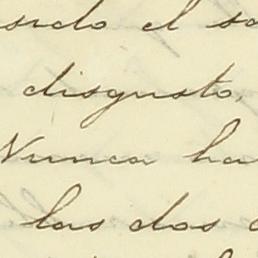 sido el sa
disgusto,
Nunca ha
las dos